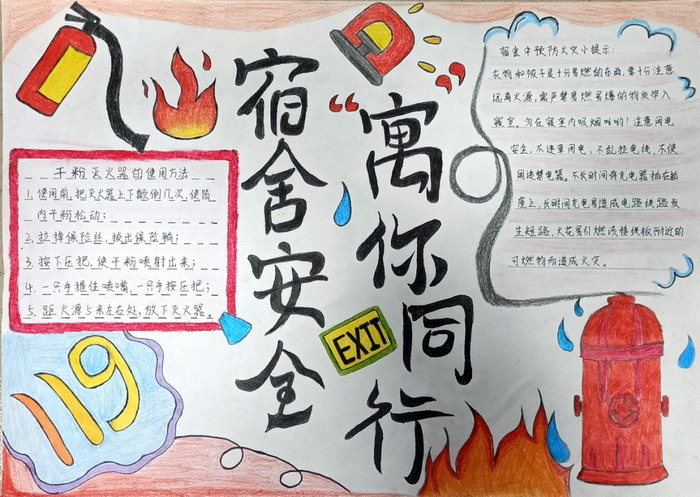 宿舍安全
“寓你同行
干粉灭火器的使用方法
1、使用前，把灭火器上下颠倒几次，使筒
内干粉松动；
2、拉掉保险丝，拔出保险销；
3、按下压把，使干粉喷射出来；
4、一只手握住喷嘴，一只手按压把；
5、距火源5米左右处，放下灭火器。
119
EXIT
宿舍中预防火灾小提示：
衣物和被子是十分易燃的东西，要十分注意
远离火源，需严禁易燃易爆的物质带入
寝室，勿在寝室内吸烟哟哟！注意用电
安全，不违章用电，不乱拉电线，不使
用违禁电器。不长时间将充电器插在插
座上，长时间充电易造成电路线路发
生短路，火花易引燃该接线板附近的
可燃物而造成火灾。